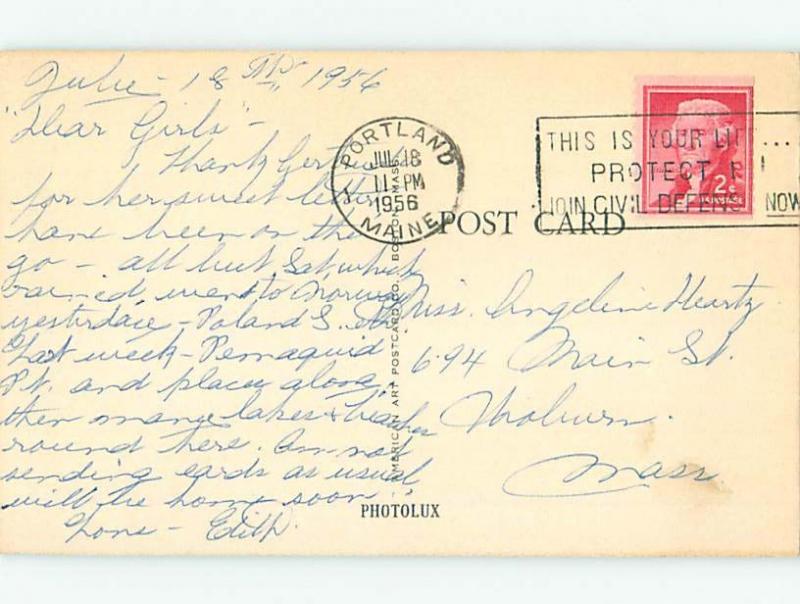 July - 18 th, 1956
"Dear Girls" -
Thank Gertrude
for her sweet letter
have been on the
go - all but Sat, which
rained, went to Norway
yesterday - Poland S.
Last week - Pemaquid
Pt. and places along
then many lakes & beaches
round here. Am not
sending cards as usual
will be home soon
Love - Edith.
PORTLAND
JUL 18
11 PM
1956
MAINE
THIS IS YOUR LIF...
PROTECT I
JOIN CIVIL DEFENSE NOW
2¢
POST CARD
AMERICAN ART POSTCARD CO., BOSTON, MASS.
Miss. Angeline Heartz
694 Main St.
Woburn.
Mass.
PHOTOLUX